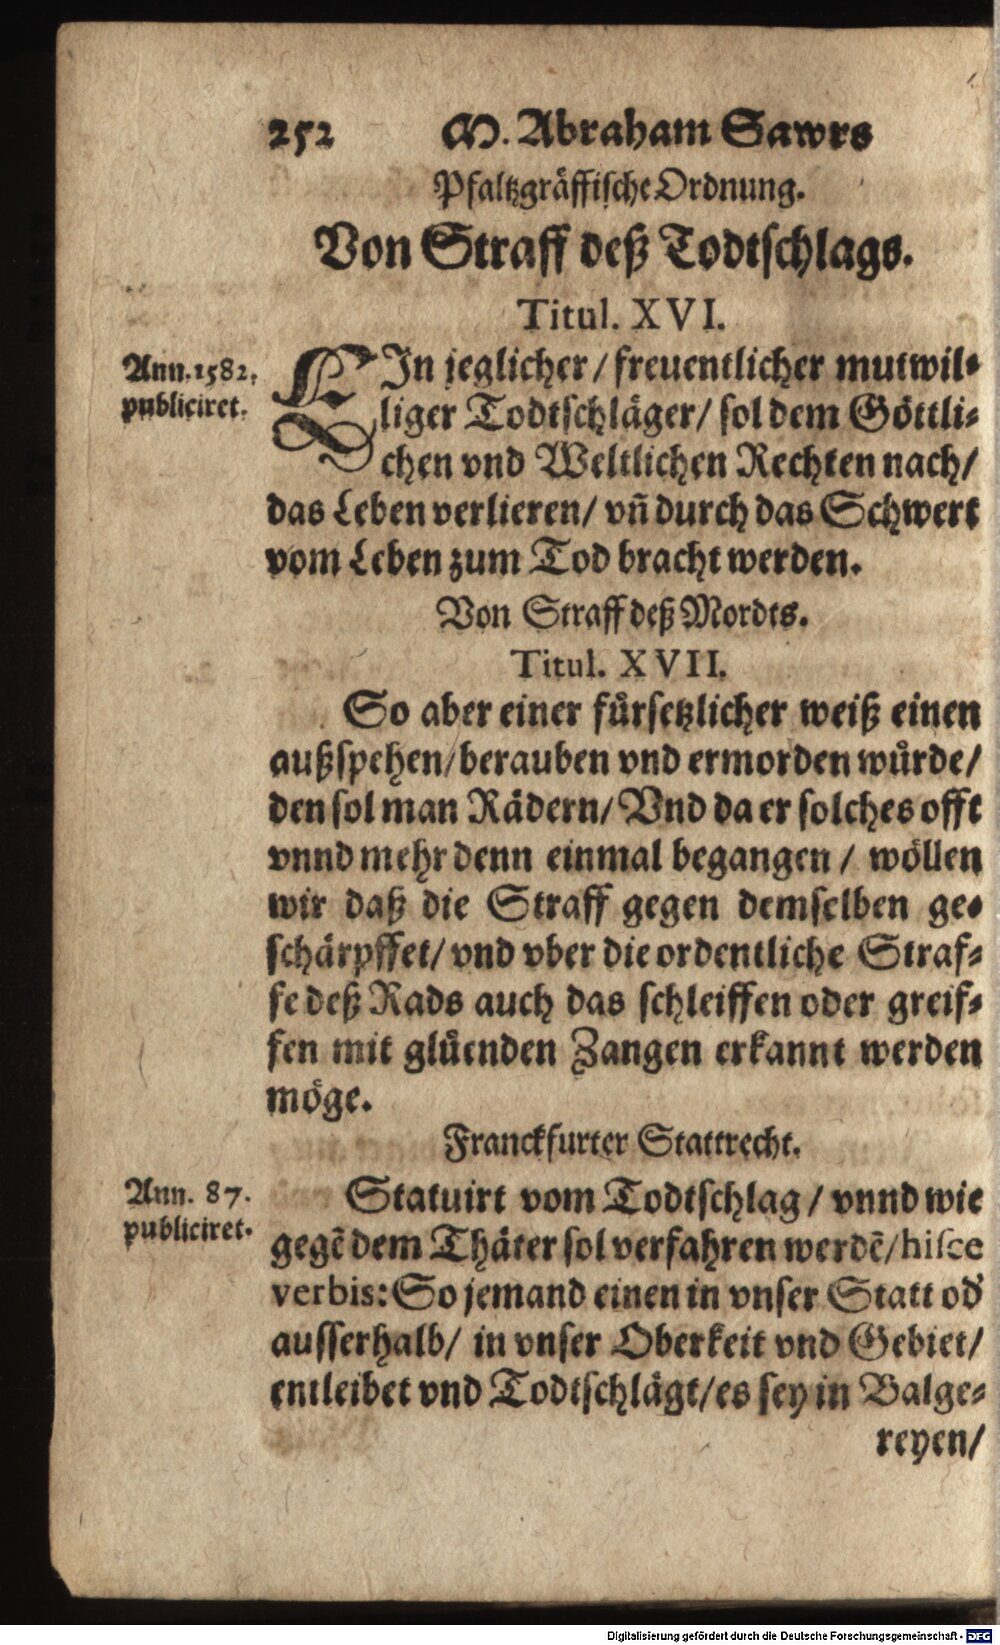 252 M. Abraham Sawrs
Pfaltzgräffische Ordnung.
Von Straff deß Todtschlags.
Titul. XVI.
Ann. 1582.
publiciret.
EIn jeglicher / freuentlicher mutwil⸗
liger Todtschläger / sol dem Göttli⸗
chen vnd Weltlichen Rechten nach /
das Leben verlieren / vñ durch das Schwert
vom Leben zum Tod bracht werden.
Von Straff deß Mordts.
Titul. XVII.
So aber einer fürsetzlicher weiß einen
außspehen / berauben vnd ermorden würde /
den sol man Rädern / Vnd da er solches offt
vnnd mehr denn einmal begangen / wöllen
wir daß die Straff gegen demselben ge⸗
schärpffet / vnd vber die ordentliche Straf⸗
fe deß Rads auch das schleiffen oder greif⸗
fen mit glüenden Zangen erkannt werden
möge.
Franckfurter Stattrecht.
Ann. 87.
publiciret.
Statuirt vom Todtschlag / vnnd wie
gegẽ dem Thäter sol verfahren werdẽ / hisce
verbis: So jemand einen in vnser Statt od'
ausserhalb / in vnser Oberkeit vnd Gebiet /
entleibet vnd Todtschlägt / es sey in Balge⸗
reyen /
Digitalisierung gefördert durch die Deutsche Forschungsgemeinschaft - DFG